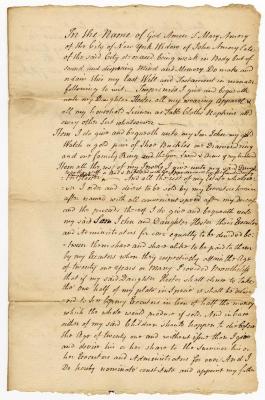 In the Name of God Amen I Mary Amory
of the City of New York Widow of John Amory late
of the said City deceased being weak in Body but of
sound and disposing Mind and Memory Do make and
ordain this my last Will and Testament in manner
following to wit. Imprimis I give and bequeath
unto my Daughter Hester all my wearing Apparel &
all my household Linnen as Table Cloths Napkins and
every other sort whatsoever
Item I do give and bequeath unto my Son John my gold
Watch a gold pair of Shoe Buckles my Diamond ring
and our family Ring
Item all the rest of my
And all the rest of my
I order and desire to be sold by my Executors herein
after named with all convenient speed after my decease
and the proceeds thereof I do give and bequeath unto
my said Son John and Daughter Hester their Executors
and Administrators for ever equally to be divided be-
tween them share and share alike to be paid to them
by my Executors when they respectively attain the Age
of twenty one Years or Marry Provided Nevertheless
that if my said Daughter Hester shall chuse to take
the one half of my plate in Specie it shall be deliver-
ed to her by my Executors in lieu of half the money
which the whole would produce if sold. And in case
either of my said Children should happen to die before
the Age of twenty one and without issue then I give
and devise his or her share to the Survivor his or
her Executors and Administrators for ever. And I
Do hereby nominate constitute and appoint my